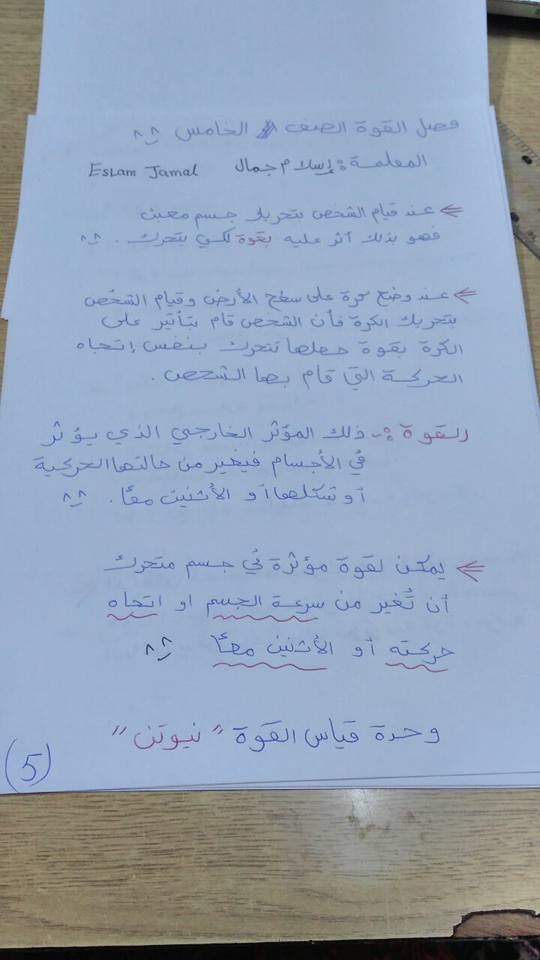 فصل القوة الصف الخامس ^^
المعلمة : إسلام جمال Eslam Jamal
عند قيام الشخص بتحريك جسم معين
فهو بذلك أثر عليه بقوة لكي يتحرك . ^^
عند وضع كرة على سطح الأرض وقيام الشخص
بتحريك الكرة فأن الشخص قام بتأثير على
الكرة بقوة جعلها تتحرك بنفس إتجاه
الحركة التي قام بها الشخص .
القوة :- ذلك المؤثر الخارجي الذي يؤثر
في الأجسام فيغير من حالتها الحركية
أو شكلها أو الأثنين معاً . ^^
يمكن لقوة مؤثرة في جسم متحرك
أن تُغير من سرعة الجسم او اتجاه
حركته أو الأثنين معاً ^^
وحدة قياس القوة " نيوتن "
(5)